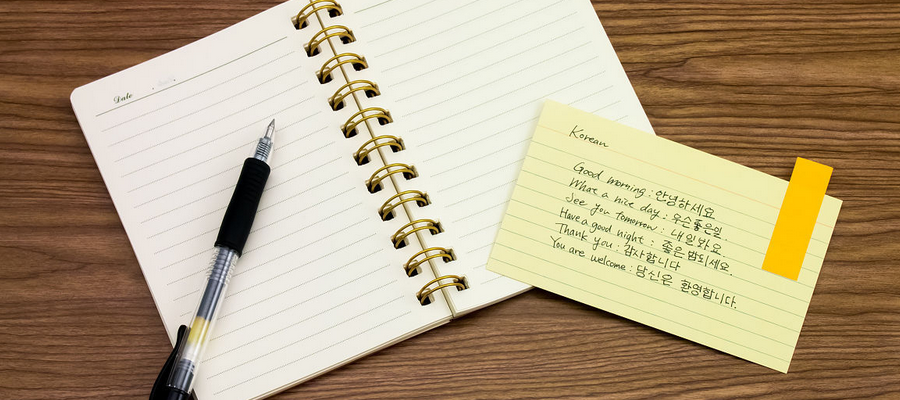 Date
Korean
Good morning : 안녕하세요
What a nice day : 우슨좋은일.
See you tomorrow : 내일봐요.
Have a good night : 좋은 밤되세요.
Thank you : 감사합니다
You are welcome : 당신은 환영합니다.